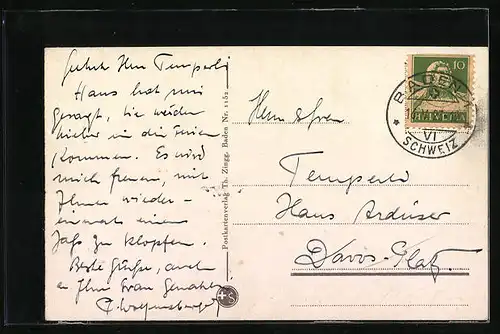 Geehrter Herr Temperli
Hans hat mir
gesagt, Sie werden
hieher in die Ferien
kommen. Es wird
mich freuen, mit
Ihnen wieder-
einmal einen
Jass zu klopfen.
Beste Grüsse, auch
an Ihre Frau Gemahlin
Postkartenverlag Th. Zingg. Baden Nr. 1182
Herrn
Temperli
Haus Ardüser
Davos-Platz.
10
HELVETIA
BADEN
VI
SCHWEIZ